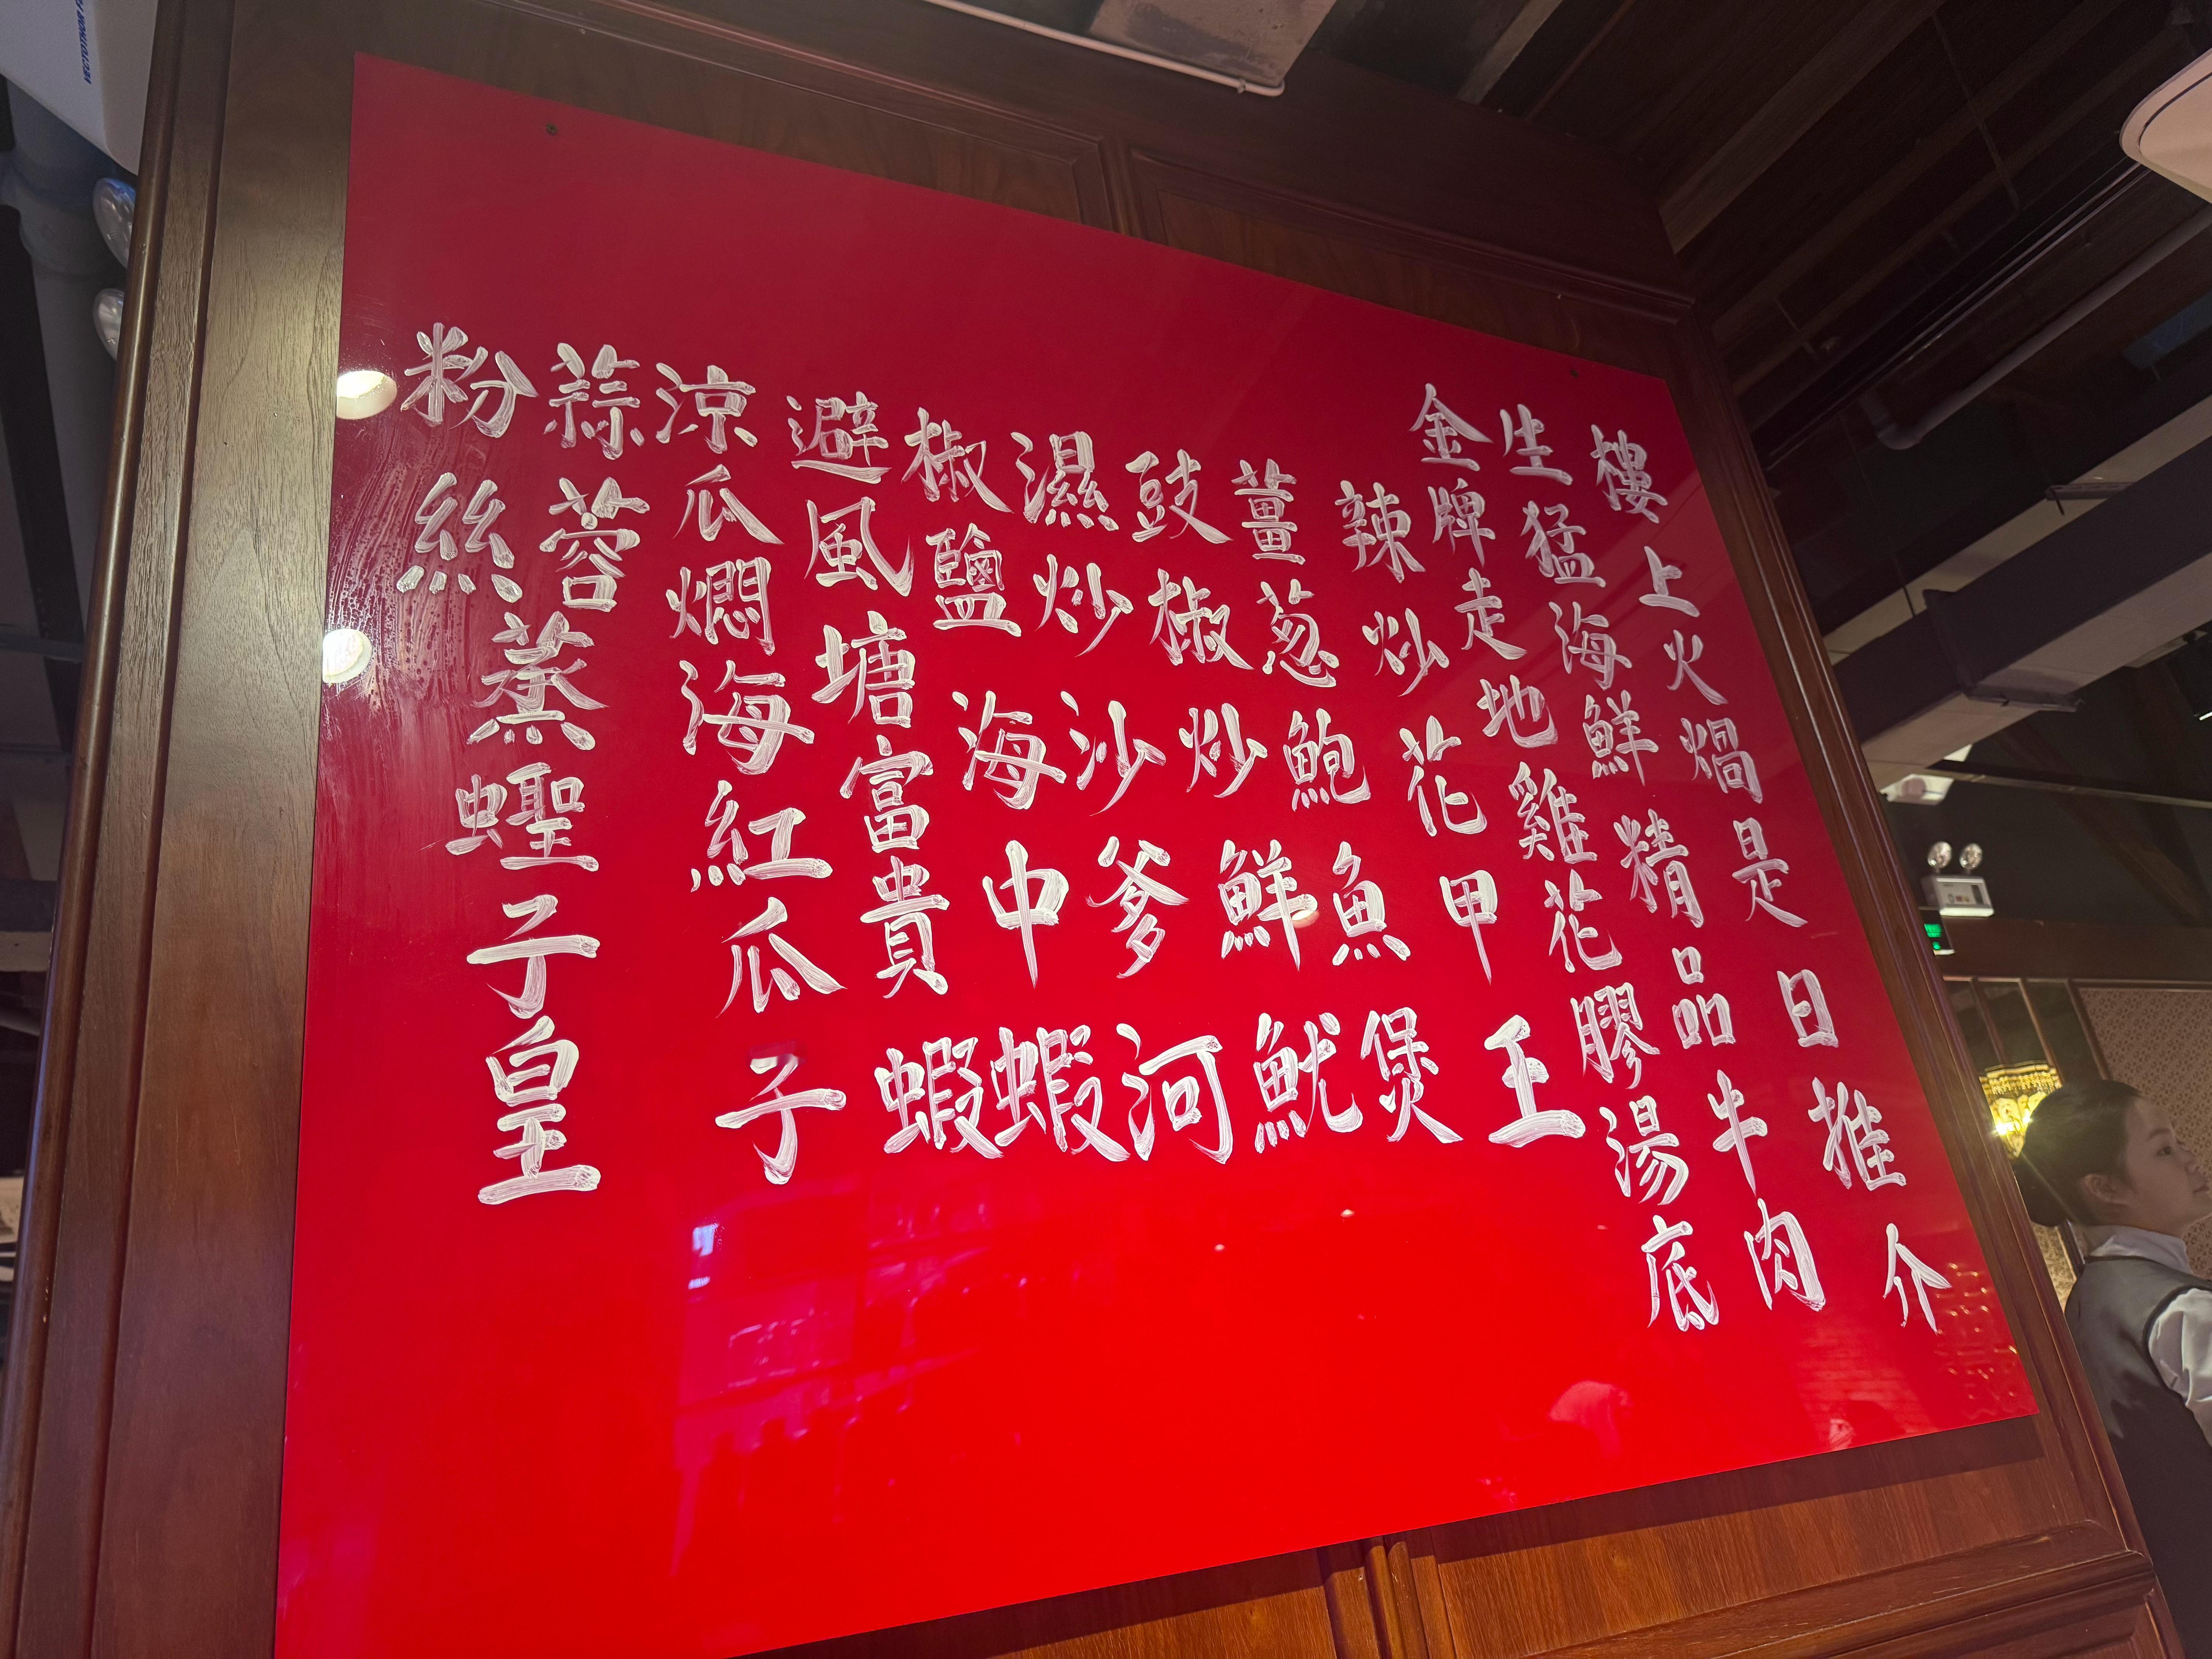 樓上火焗是日推介
生猛海鮮精品牛肉
金牌走地雞花膠湯底
辣炒花甲王
薑葱鮑魚煲
豉椒炒鮮魷
濕炒沙爹河
椒鹽海中蝦
避風塘富貴蝦
涼瓜燜海紅瓜子
蒜蓉
粉絲蒸蟶子皇